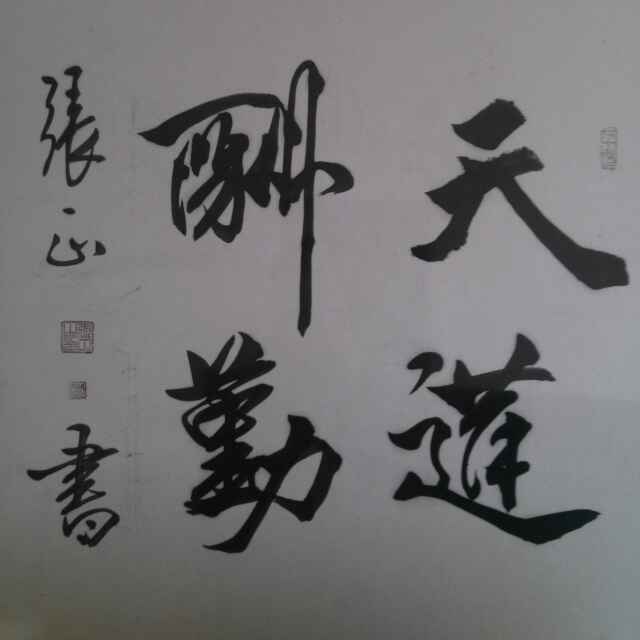 天道
酬勤
張正書